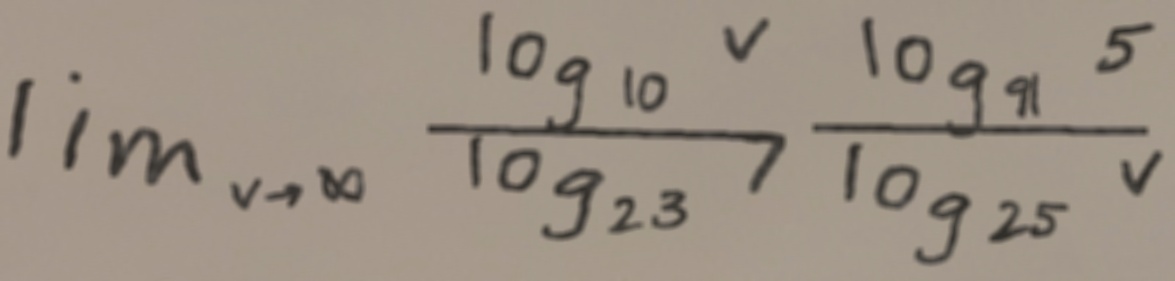 lim_{v→∞} \frac{log_{10} v}{log_{23} 7} \frac{log_{91} 5}{log_{25} v}